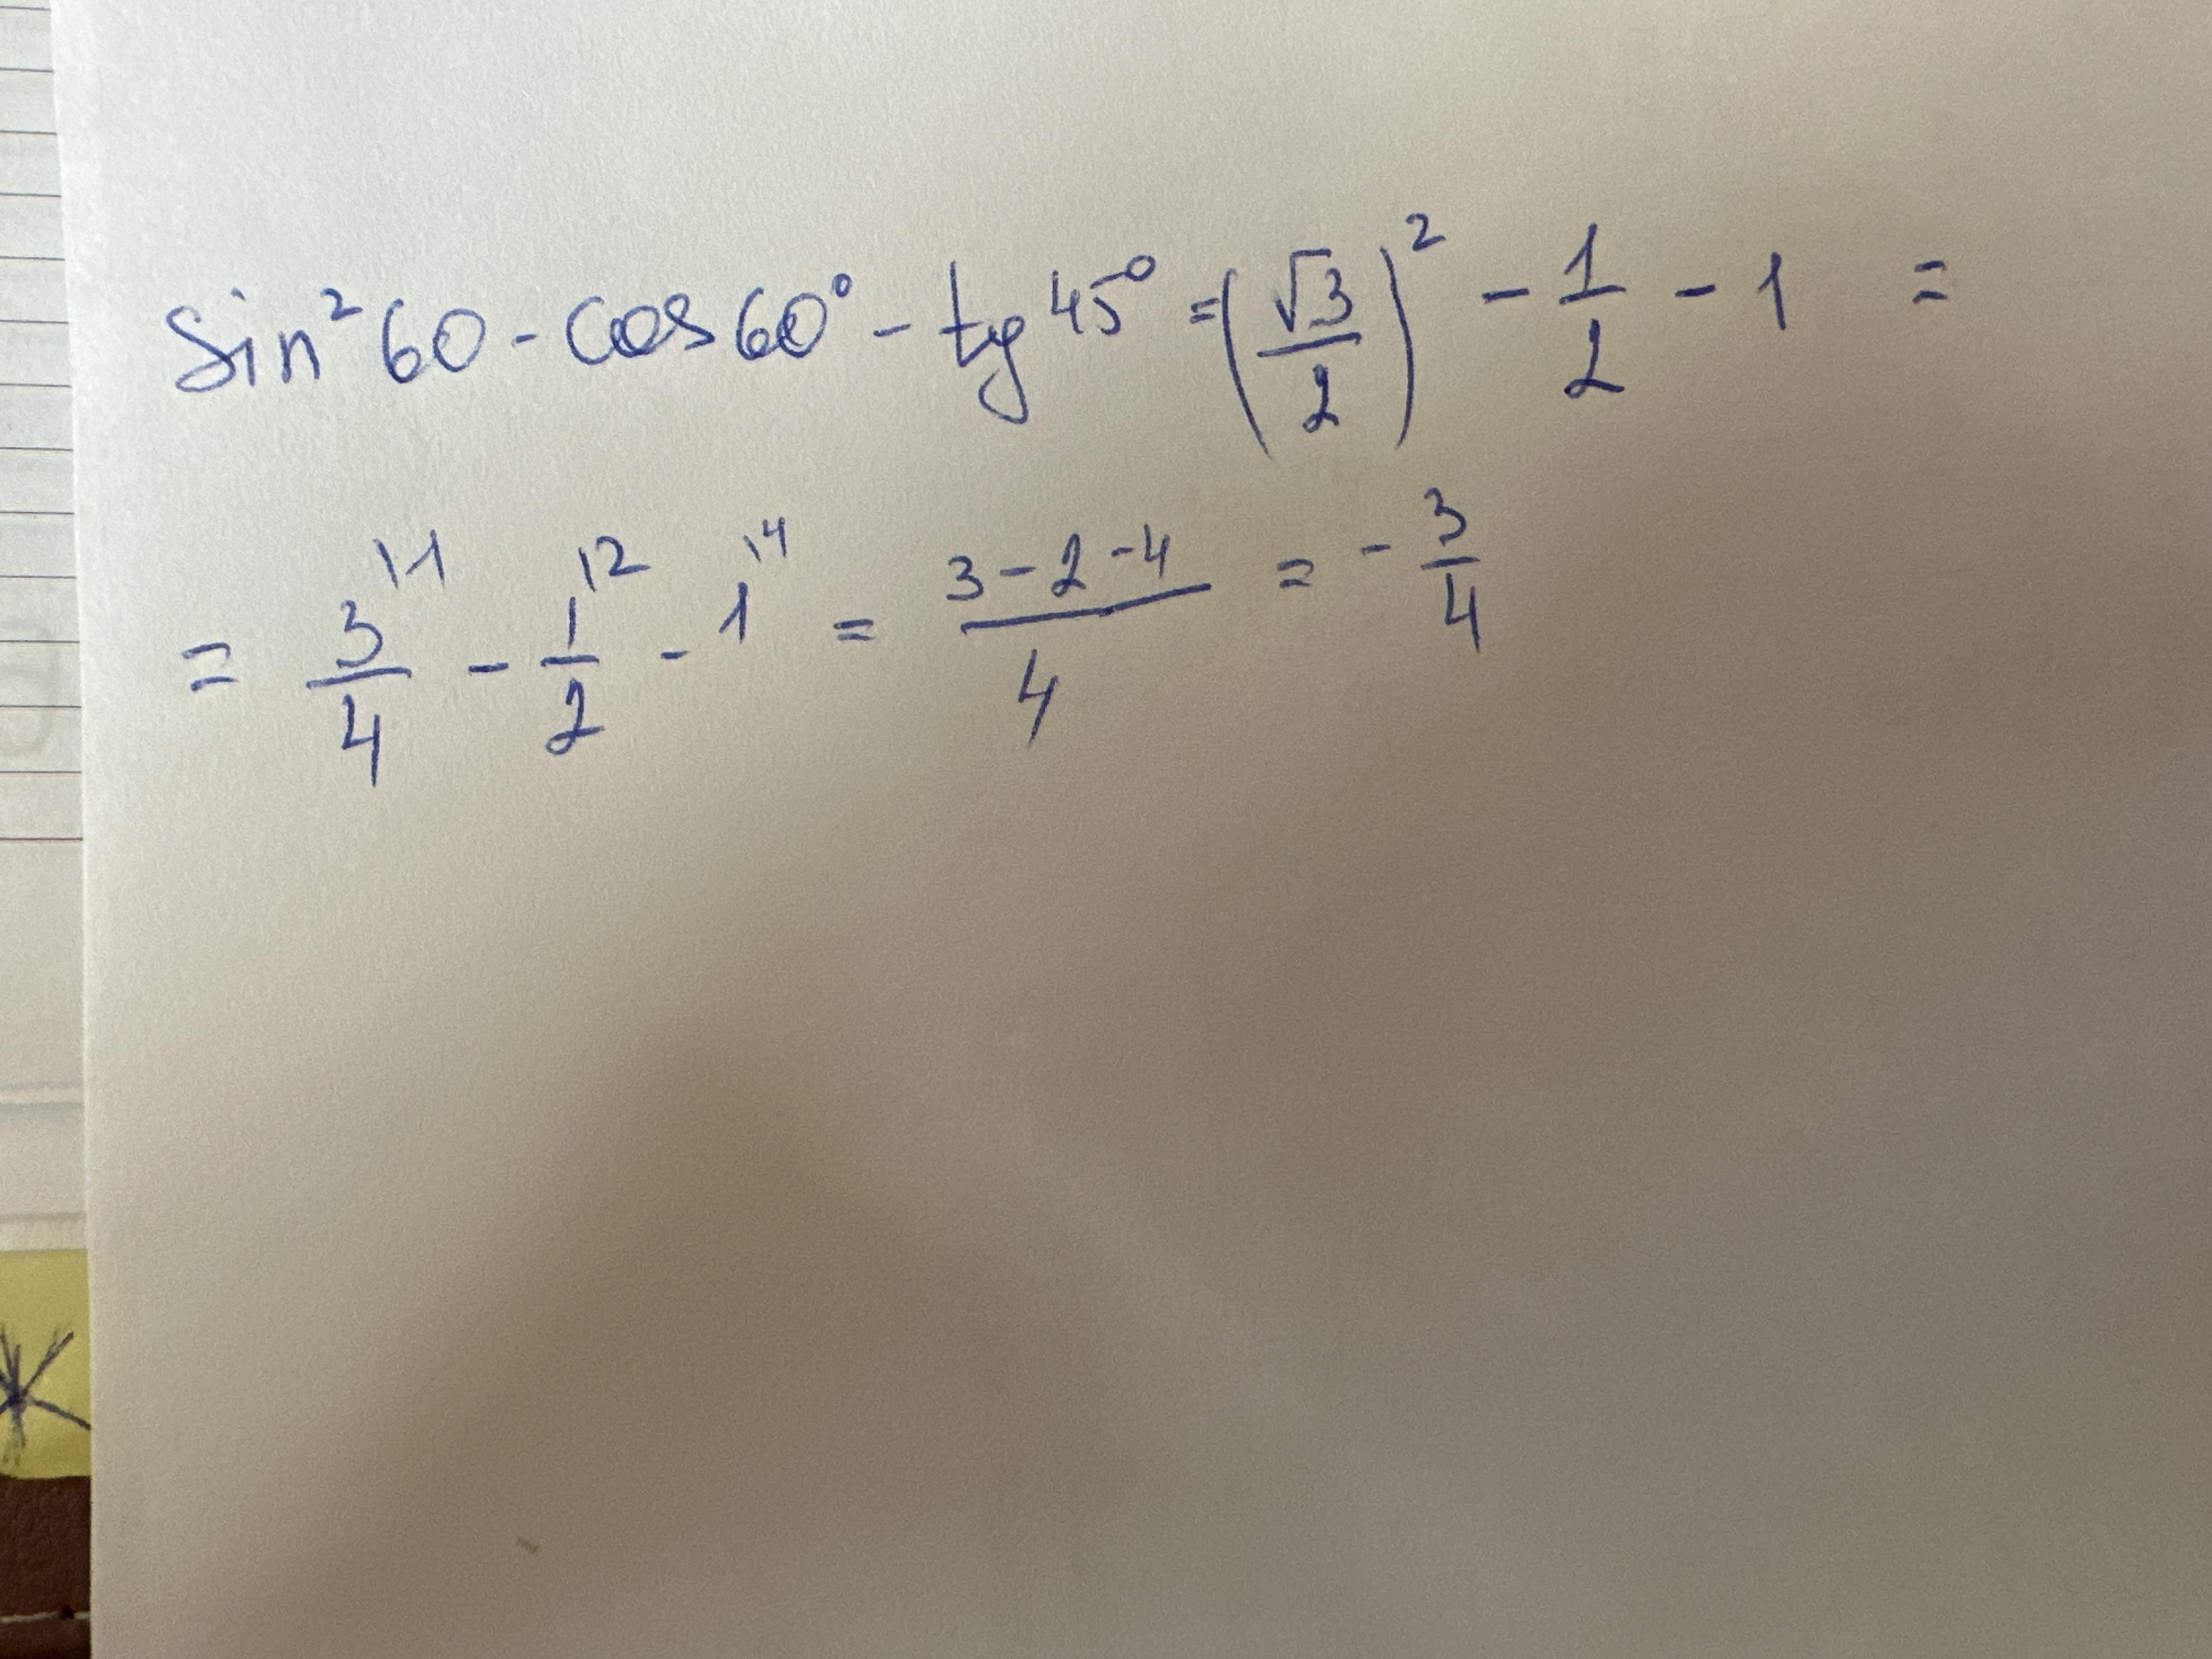 sin²60 - cos60° - tg45° = (√3/2)² - 1/2 - 1 =
= 3/4^\1 - 1/2^\2 - 1^\4 = (3-2-4)/4 = -3/4